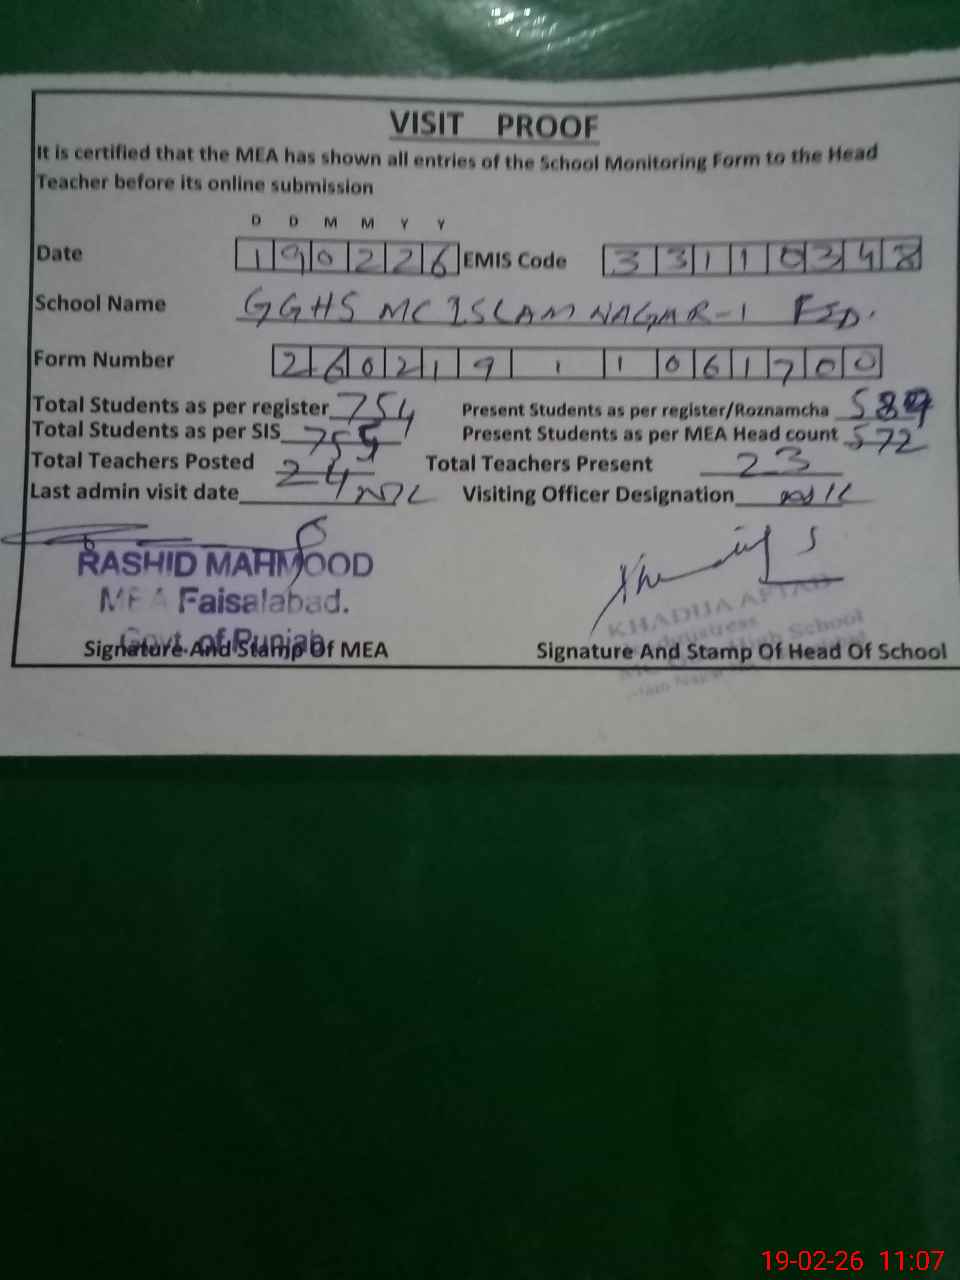 VISIT PROOF
It is certified that the MEA has shown all entries of the School Monitoring Form to the Head
Teacher before its online submission
D D M M Y Y
Date 190226 EMIS Code 33110348
School Name GGHS MC ISLAM NAGAR-1 FSD.
Form Number 26021911061700
Total Students as per register 754 Present Students as per register/Roznamcha
Total Students as per SIS 755 Present Students as per MEA Head count 572
Total Teachers Posted 24 Total Teachers Present 23
Last admin visit date Visiting Officer Designation
RASHID MAHMOOD
MEA Faisalabad.
Govt. of Punjab
KHADIJA AFTAB
High School
Signature And Stamp Of MEA Signature And Stamp Of Head Of School
19-02-26 11:07